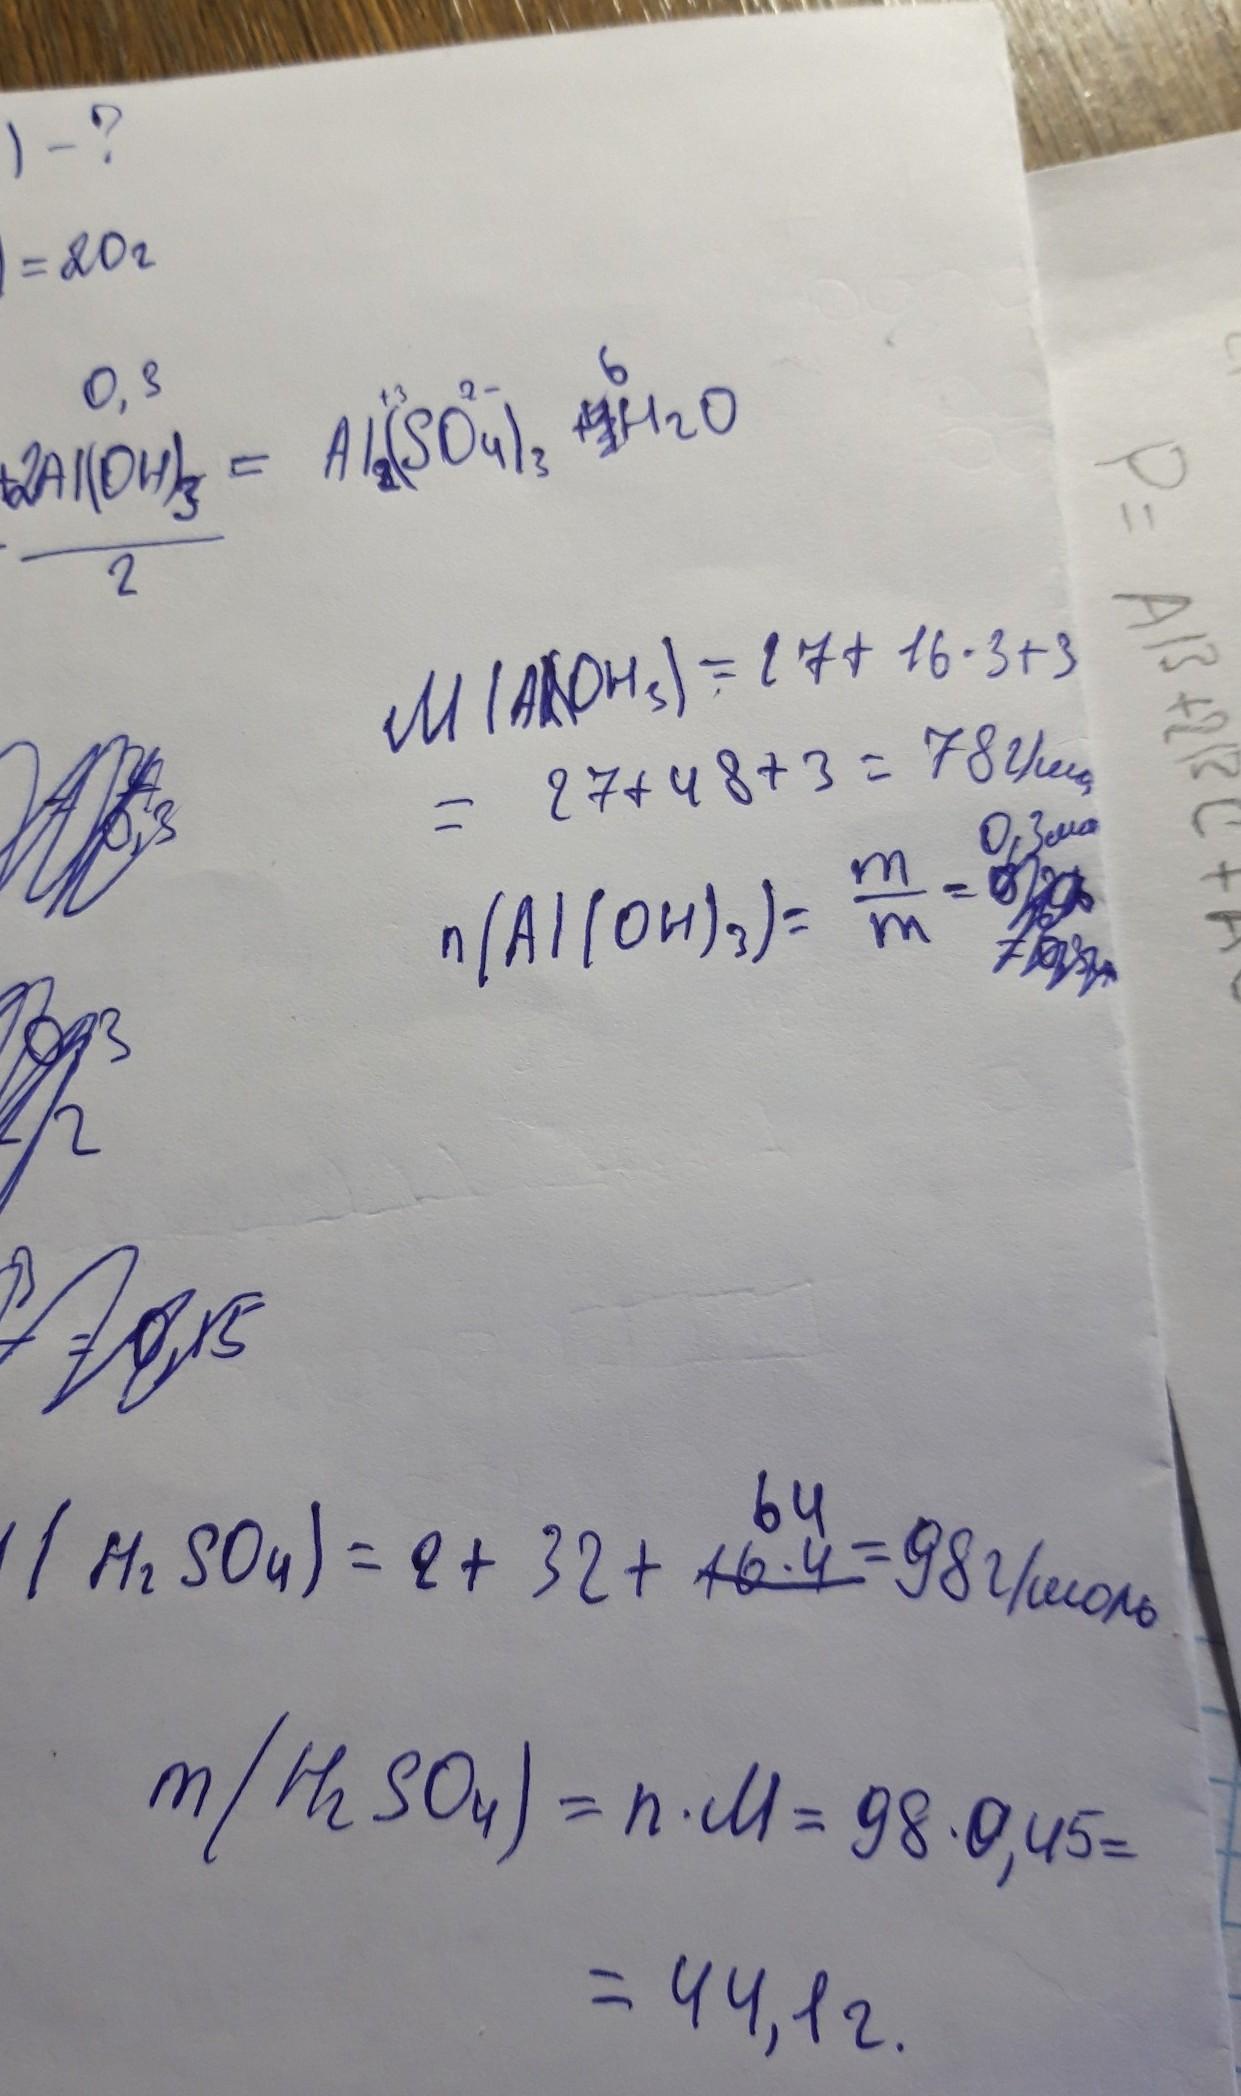 ) - ?
) = 20г
0,3
+2Al(OH)3 = Al2(SO4)3 + 6H2O
2
+3 2-
M(Al(OH3) = 27 + 16·3+3
= 27+48+3 = 78 г/мо
0,3 мо
n(Al(OH)3) = m/m =
0,3
0,3
2
= 0,15
(H2SO4) = 2 + 32 + 16·4 = 98 г/моль
64
m(H2SO4) = n·M = 98·0,45 =
= 44,1 г.
P =
Al3+